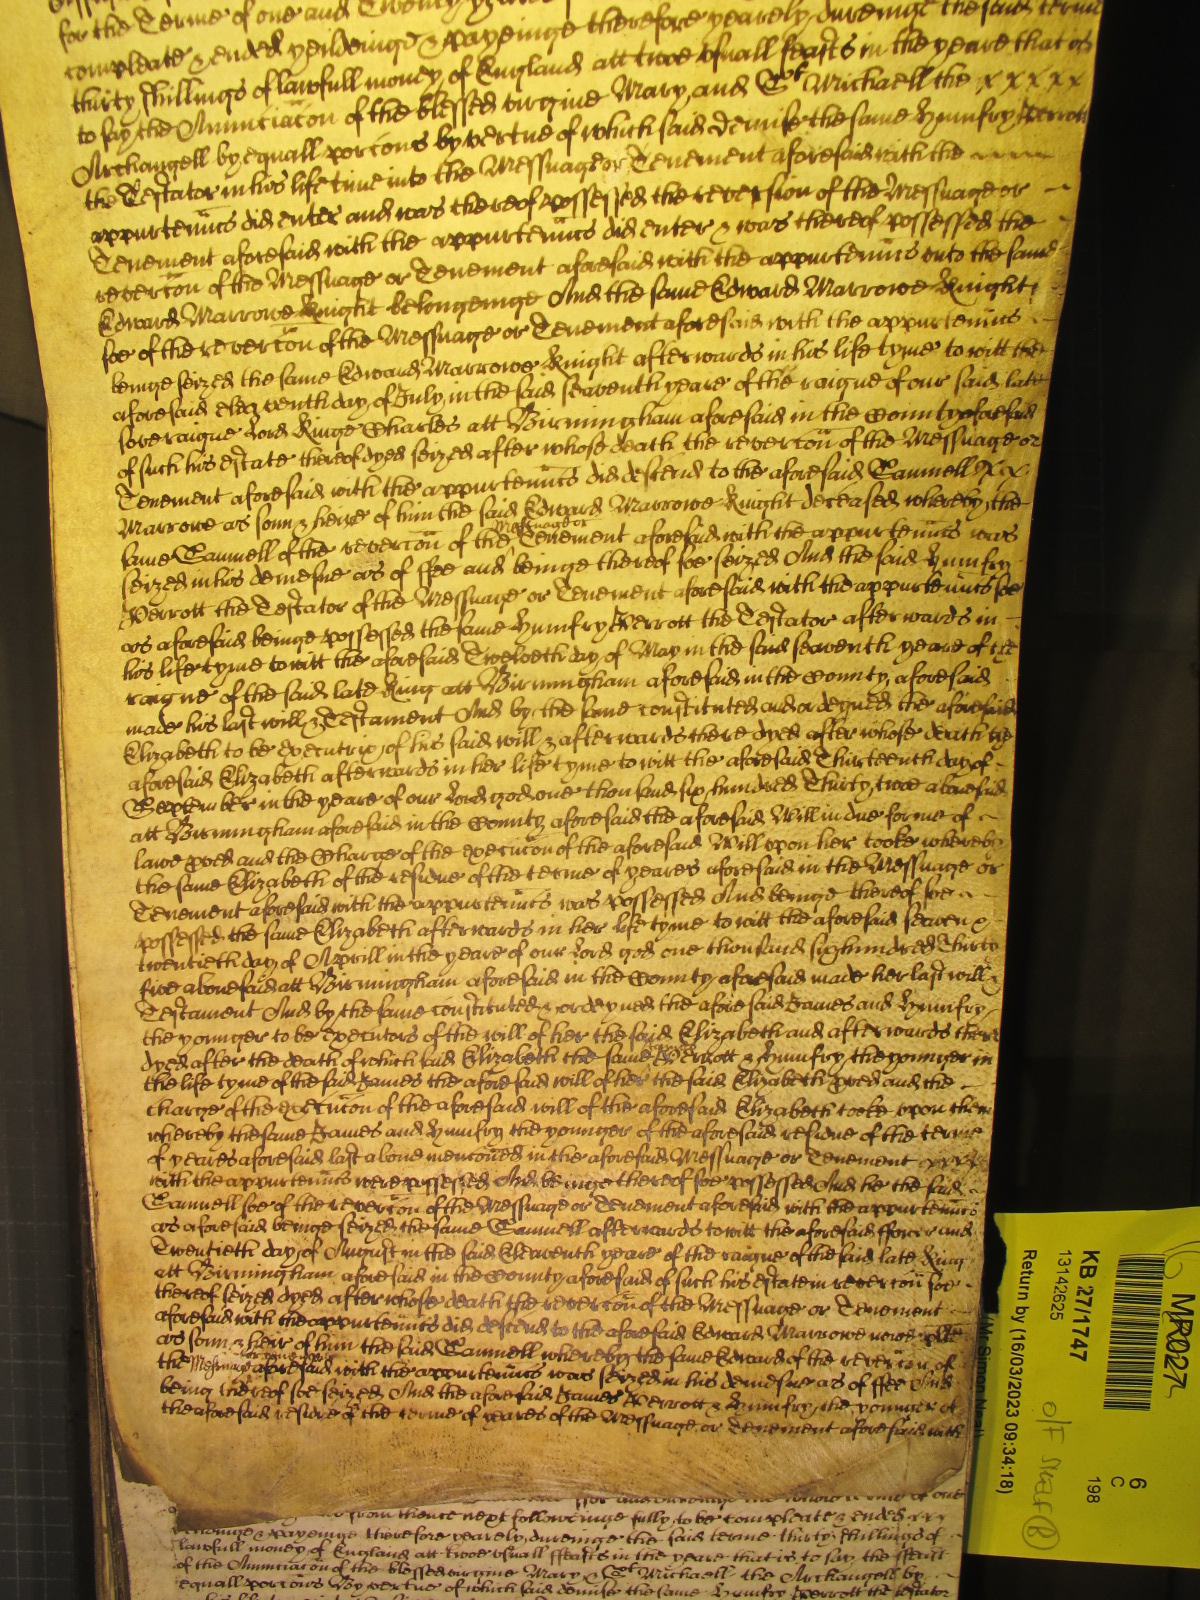 for the Terme of one and Twenty yeares
compleate & ended yeildeinge & Payeinge therefore yearely dureinge the said terme
thirty shillings of lawfull money of England att twoe usuall feasts in the yeare that is
to say the Anunciacōn of the blessed virgine Mary, and St Michaell the x x x x x
Archangell by equall porcōns by vertue of which said demise the same Humfry Perrott
the Testator in his life time into the Messuage or Tenement aforesaid with the
appurtenñcs did enter and was thereof Possessed the reversion of the Messuage or
Tenement aforesaid with the appurtenñcs did enter & was thereof possessed the
revercōn of the Messuage or Tenement aforesaid with the appurtenñcs unto the same
Edward Marrowe Knight belongeinge And the same Edward Marrowe Knight
soe of the revercōn of the Messuage or Tenement aforesaid with the appurtenñcs
beinge seized the same Edward Marrowe Knight afterwards in his life tyme to witt the
aforesaid eleaventh day of July in the said seaventh yeare of the raigne of our said late
soveraigne Lord Kinge Charles att Birmingham aforesaid in the County aforesaid
of such his estate thereof dyed seized after whose death the revercōn of the Messuage or
Tenement aforesaid with the appurtenñcs did descend to the aforesaid Samuell x x
Marrowe as sonn & heire of him the said Edward Marrowe Knight deceased whereby the
same Samuell of the revercōn of the Messuage or Tenement aforesaid with the appurtenñcs was
seized in his demesne as of ffee and beinge thereof soe seized And the said Humfry
Perrott the Testator of the Messuage or Tenement aforesaid with the appurtenñcs soe
as aforesaid beinge possessed the same Humfry Perrott the Testator afterwards in
his life tyme to witt the aforesaid Twelveth day of May in the said seaventh yeare of the
raigne of the said late King att Birmingham aforesaid in the County aforesaid
made his last will & Testament And by the same constituted and ordeyned the aforesaid
Elizabeth to be executrix of his said will & afterwards there dyed after whose death the
aforesaid Elizabeth afterwards in her life tyme to witt the aforesaid Thirteenth day of
September in the yeare of our Lord god one thousand six hundred Thirty twoe abovesaid
att Birmingham aforesaid in the County aforesaid the aforesaid Will in due forme of
lawe pved and the Charge of the execucōn of the aforesaid Will upon her tooke whereby
the same Elizabeth of the residue of the terme of yeares aforesaid in the Messuage or
Tenement aforesaid with the appurtenñcs was possessed And beinge thereof soe
possessed the same Elizabeth afterwards in her life tyme to witt the aforesaid seaven x
twentieth day of Aprill in the yeare of our Lord god one thousand six hundred Thirty
five abovesaid att Birmingham aforesaid in the County aforesaid made her last will &
Testament And by the same constituted & ordeyned the aforesaid James and Humfry
the younger to be Executors of the will of her the said Elizabeth and afterwards there
dyed after the death of which said Elizabeth the same James Perrott & Humfry the younger in
the life tyme of the said James the aforesaid will of her the said Elizabeth pved and the
charge of the execucōn of the aforesaid will of the aforesaid Elizabeth tooke upon them
whereby the same James and Humfry the younger of the aforesaid residue of the terme
of yeares aforesaid last above mencōned in the aforesaid Messuage or Tenement x x x x
with the appurtenñcs were possessed And beinge thereof soe possessed And he the said
Samuell soe of the revercōn of the Messuage or Tenement aforesaid with the appurtenñcs
as aforesaid beinge seized the same Samuell afterwards to witt the aforesaid ffower and
Twentieth day of August in the said Eleaventh yeare of the raigne of the said late King
att Birmingham aforesaid in the County aforesaid of such his estate in revercōn soe
thereof seized dyed after whose death the revercōn of the Messuage or Tenement
aforesaid with the appurtenñcs did descend to the aforesaid Edward Marrowe nowe plt
as sonn & heir of him the said Samuell whereby the same Edward of the revercōn of
the Messuage or tenement aforesaid with the appurtenñcs was seized in his demesne as of ffee And
being thereof soe seized And the aforesaid James Perrott & Humfry the younger of
the aforesaid residue of the terme of yeares of the Messuage or Tenement aforesaid with
from thence next followeinge fully to be compleate & ended x x x
& payeinge therefore yearely dureinge the said terme thirty shillings of
lawfull money of England att twoe usuall ffeasts in the yeare that is to say the ffeast
of the Anunciacōn of the blessed virgine Mary & St Michaell the Archangell by
equall porcōns By vertue of which said demise the same Humfry Perrott the testator
MR027
6
C
198
KB 27/1747
13142625
Return by (16/03/2023 09:34:18)